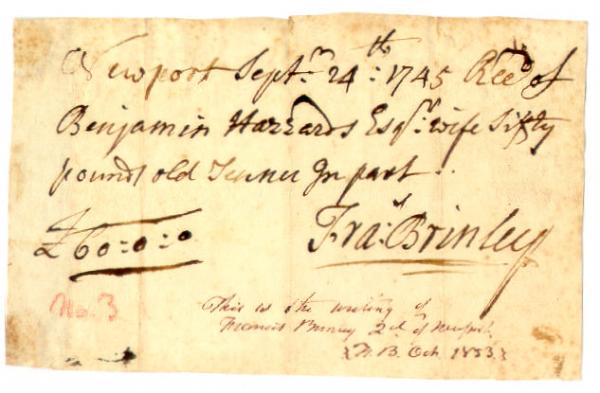 Newport Septr. 24th: 1745 Recd of
Benjamin Hazzards Esqr. wife Sixty
pounds old Tenner In part
£60=0=0 Fras: Brinley
No. 3
This is the writing of
Francis Brinley 2d of Newport
F. B. Oct. 1853